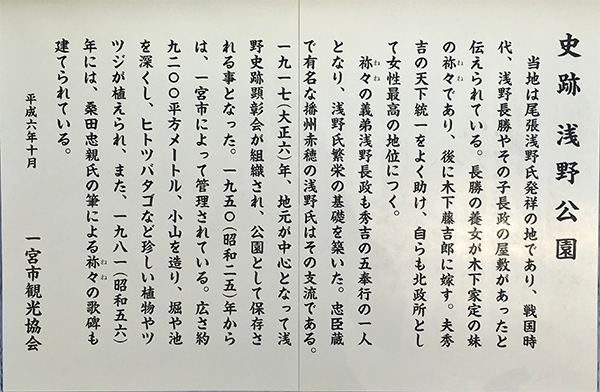 史跡 浅野公園
当地は尾張浅野氏発祥の地であり、戦国時
代、浅野長勝やその子長政の屋敷があったと
伝えられている。長勝の養女が木下家定の妹
の祢々ねねであり、後に木下藤吉郎に嫁す。夫秀
吉の天下統一をよく助け、自らも北政所とし
て女性最高の地位につく。
祢々ねねの義弟浅野長政も秀吉の五奉行の一人
となり、浅野氏繁栄の基礎を築いた。忠臣蔵
で有名な播州赤穂の浅野氏はその支流である。
一九一七(大正六)年、地元が中心となって浅
野史跡顕彰会が組織され、公園として保存さ
れる事となった。一九五〇(昭和二五)年から
は、一宮市によって管理されている。広さ約
九二〇〇平方メートル、小山を造り、堀や池
を深くし、ヒトツバタゴなど珍しい植物やツ
ツジが植えられ、また、一九八一(昭和五六)
年には、桑田忠親氏の筆による祢々ねねの歌碑も
建てられている。
平成六年十月
一宮市観光協会